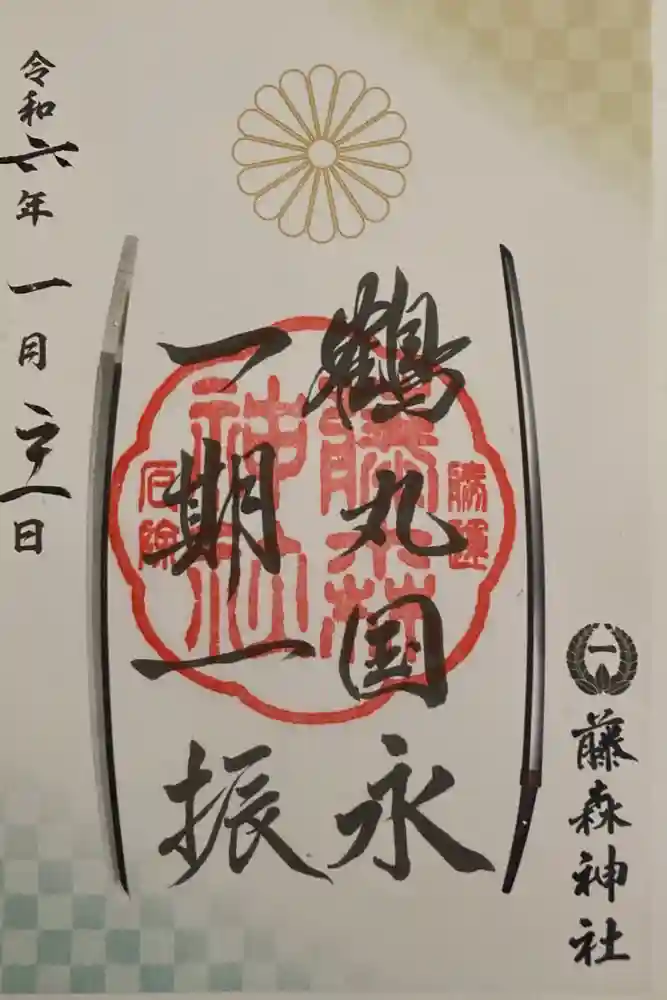 鶴丸国永
一期一振
藤森神社
勝運
厄除
藤森神社
令和六年一月二十一日